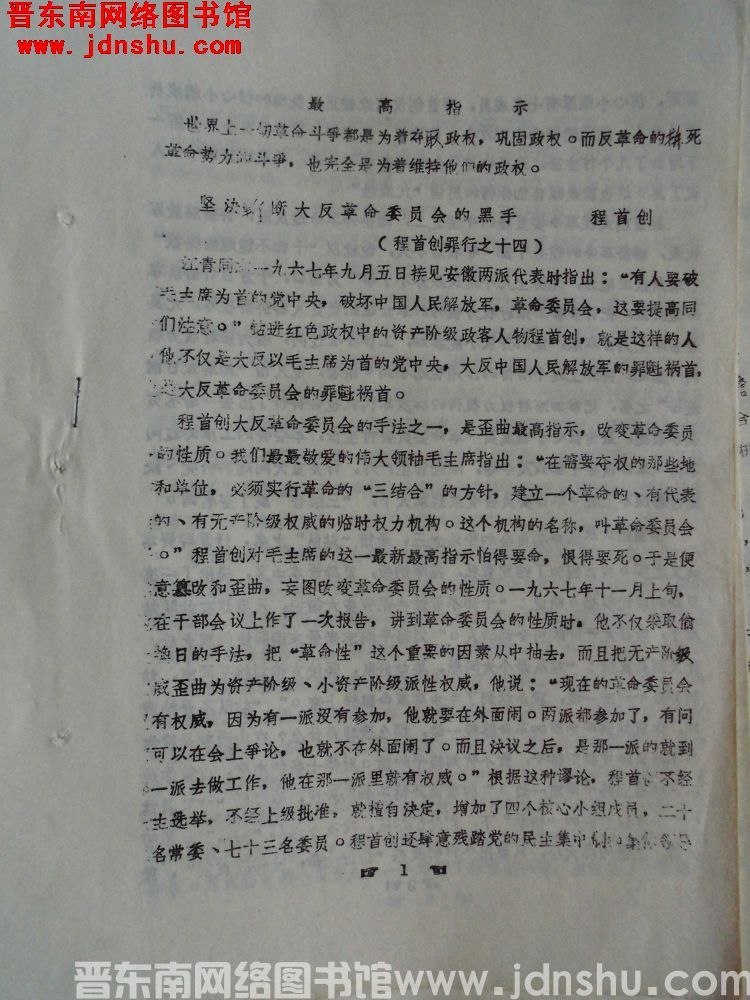 晋东南网络图书馆
www.jdnshu.com
最高指示
世界上一切革命斗爭都是为着夺取政权，巩固政权。而反革命的拚死
革命势力斗爭，也完全是为着维持他们的政权。
坚决斩断大反革命委员会的黑手 程首创
（程首创罪行之十四）
江青同志一九六七年九月五日接见安徽两派代表时指出：“有人要破
毛主席为首的党中央，破坏中国人民解放军，革命委员会，这要提高同
们注意。”钻进红色政权中的资产阶级政客人物程首创，就是这样的人
他不仅是大反以毛主席为首的党中央，大反中国人民解放军的罪魁祸首，
是大反革命委员会的罪魁祸首。
程首创大反革命委员会的手法之一，是歪曲最高指示，改变革命委员
的性质。我们最最敬爱的伟大领袖毛主席指出：“在需要夺权的那些地
和单位，必须实行革命的“三结合”的方针，建立一个革命的、有代表
的、有无产阶级权威的临时权力机构。这个机构的名称，叫革命委员会
。”程首创对毛主席的这一最新最高指示怕得要命，恨得要死。于是便
意篡改和歪曲，妄图改变革命委员会的性质。一九六七年十一月上旬，
在干部会议上作了一次报告，讲到革命委员会的性质时，他不仅采取偷
换日的手法，把“革命性”这个重要的因素从中抽去，而且把无产阶级
威歪曲为资产阶级、小资产阶级派性权威，他说：“现在的革命委员会
有权威，因为有一派没有参加，他就要在外面闹。两派都参加了，有问
可以在会上爭论，也就不在外面闹了。而且决议之后，是那一派的就到
一派去做工作，他在那一派里就有权威。”根据这种谬论，程首创不经
主选举，不经上级批准，就擅自决定，增加了四个核心小组成员，二十
名常委、七十三名委员。程首创还肆意残踏党的民主集中制和集体领导
1
晋东南网络图书馆www.jdnshu.com